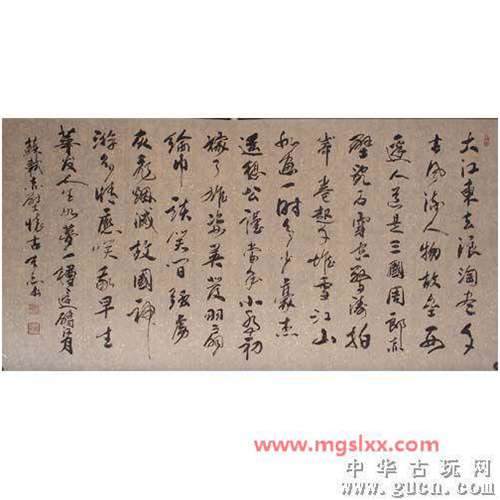 大江東去浪淘盡千
古風流人物故壘西
邊人道是三國周郎赤
壁亂石穿空驚濤拍
岸卷起千堆雪江山
如畫一時多少豪杰
遙想公瑾當年小喬初
嫁了雄姿英发羽扇
綸巾談笑間强虜
灰飛煙滅故國神
游多情應笑我早生
華发人生如夢一樽還酹江月
蘇軾赤壁懷古
www.mgslxx.com
中华古玩网
www.gucn.com